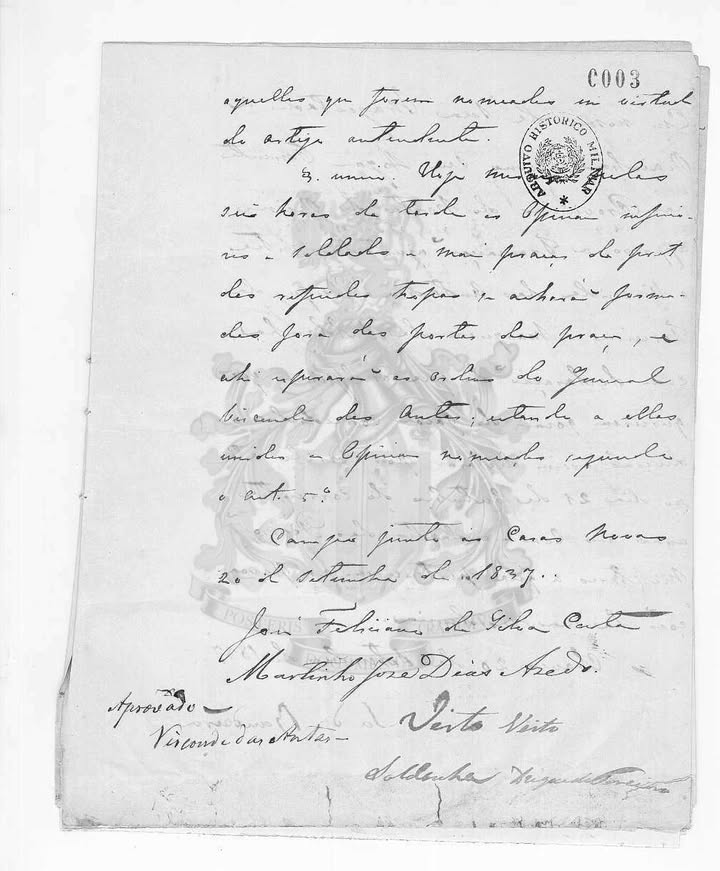 C003
aquelles que forem nomeados em virtude
do artigo antendente.
ARQUIVO HISTORICO MILITAR
Hoje
seis horas da tarde os
soldados e mais praças de pret
das referidas tropas se acharão forma-
dos fora das portas da praça, e
ahi esperarão as ordens do General
Visconde das Antas; estando a elles
unidos os nomeados segundo
o art. 5º
Campo junto às Casas Novas
20 de Setembro de 1837.
José Feliciano da Silva Costa
Martinho José Dias Azedo.
Aprovado
Visconde das Antas
Visto Visto
Saldanha Duque da Terceira
POSTERIS